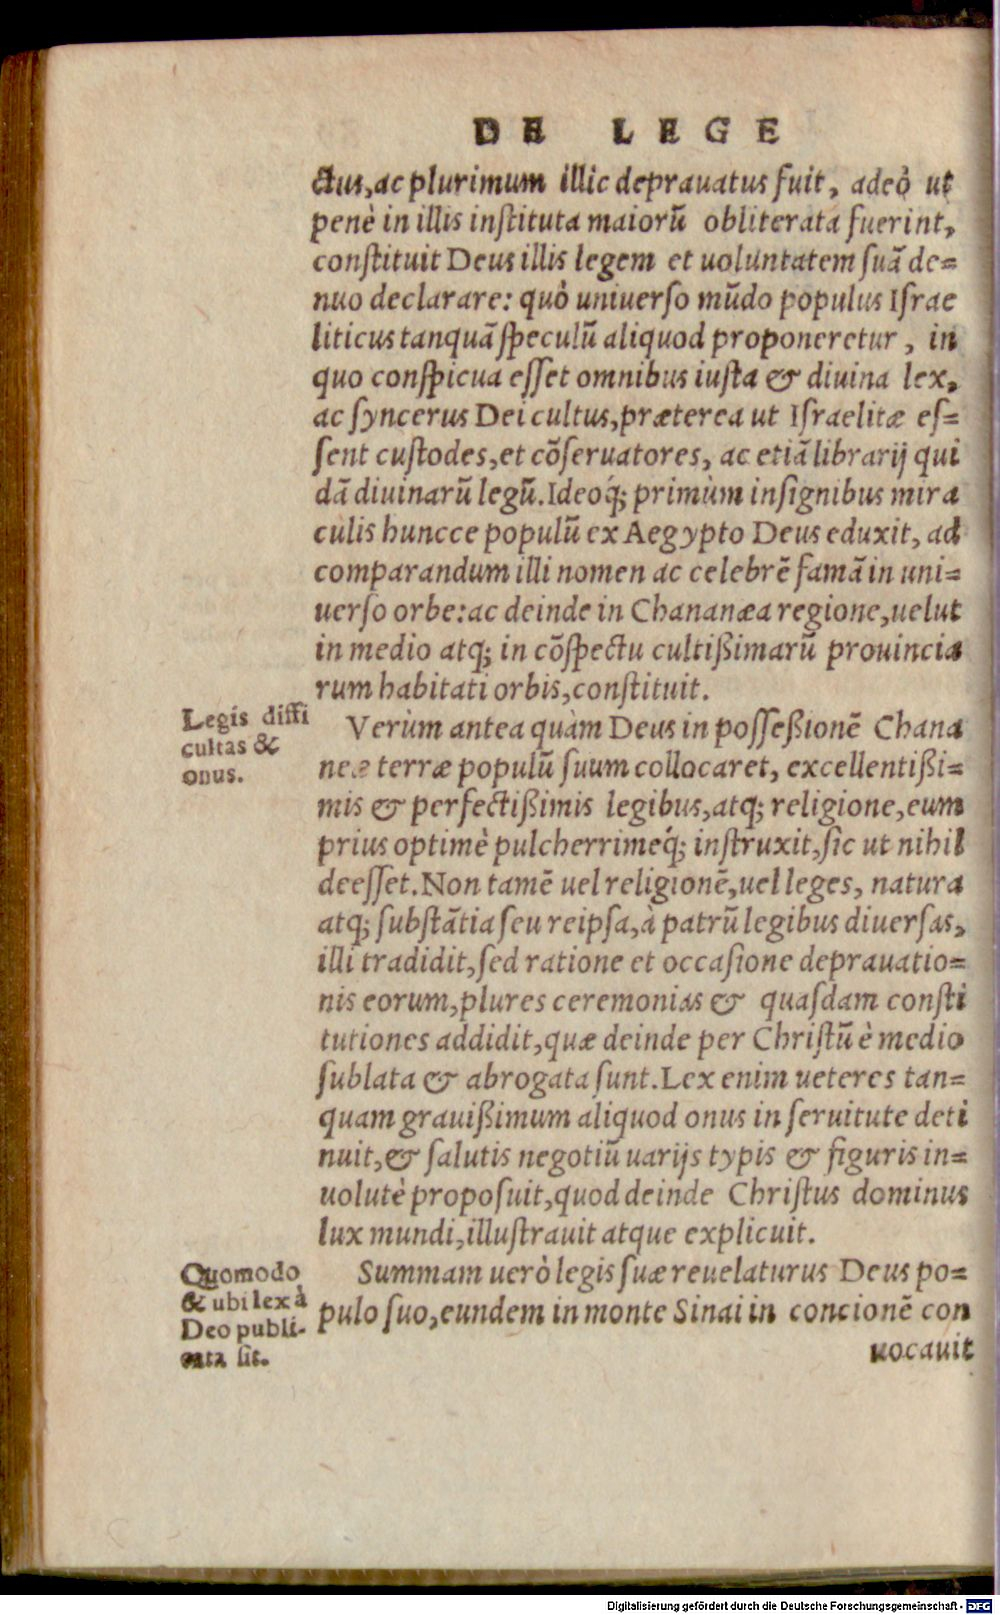 DE LEGE
ctus, ac plurimum illic deprauatus fuit, adeò ut
penè in illis instituta maiorũ obliterata fuerint,
constituit Deus illis legem et uoluntatem suã de=
nuo declarare: quò uniuerso mũdo populus Israe
liticus tanquã speculũ aliquod proponeretur, in
quo conspicua esset omnibus iusta & diuina lex,
ac syncerus Dei cultus, præterea ut Israelitæ es=
sent custodes, et cõseruatores, ac etiã librarij qui
dã diuinarũ legũ. Ideoq́; primùm insignibus mira
culis huncce populũ ex Aegypto Deus eduxit, ad
comparandum illi nomen ac celebrẽ famã in uni=
uerso orbe: ac deinde in Chananæa regione, uelut
in medio atq; in cõspectu cultißimarũ prouincia
rum habitati orbis, constituit.
Legis diffi
cultas &
onus.
Verùm antea quàm Deus in posseßionẽ Chana
neæ terræ populũ suum collocaret, excellentißi=
mis & perfectißimis legibus, atq; religione, eum
prius optimè pulcherrimeq́; instruxit, sic ut nihil
deesset. Non tamẽ uel religionẽ, uel leges, natura
atq; substãtia seu reipsa, à patrũ legibus diuersas,
illi tradidit, sed ratione et occasione deprauatio=
nis eorum, plures ceremonias & quasdam consti
tutiones addidit, quæ deinde per Christũ è medio
sublata & abrogata sunt. Lex enim ueteres tan=
quam grauißimum aliquod onus in seruitute deti
nuit, & salutis negotiũ uarijs typis & figuris in=
uolutè proposuit, quod deinde Christus dominus
lux mundi, illustrauit atque explicuit.
Quomodo
& ubi lex à
Deo publi-
cata sit.
Summam uerò legis suæ reuelaturus Deus po=
pulo suo, eundem in monte Sinai in concionẽ con
uocauit
Digitalisierung gefördert durch die Deutsche Forschungsgemeinschaft - DFG